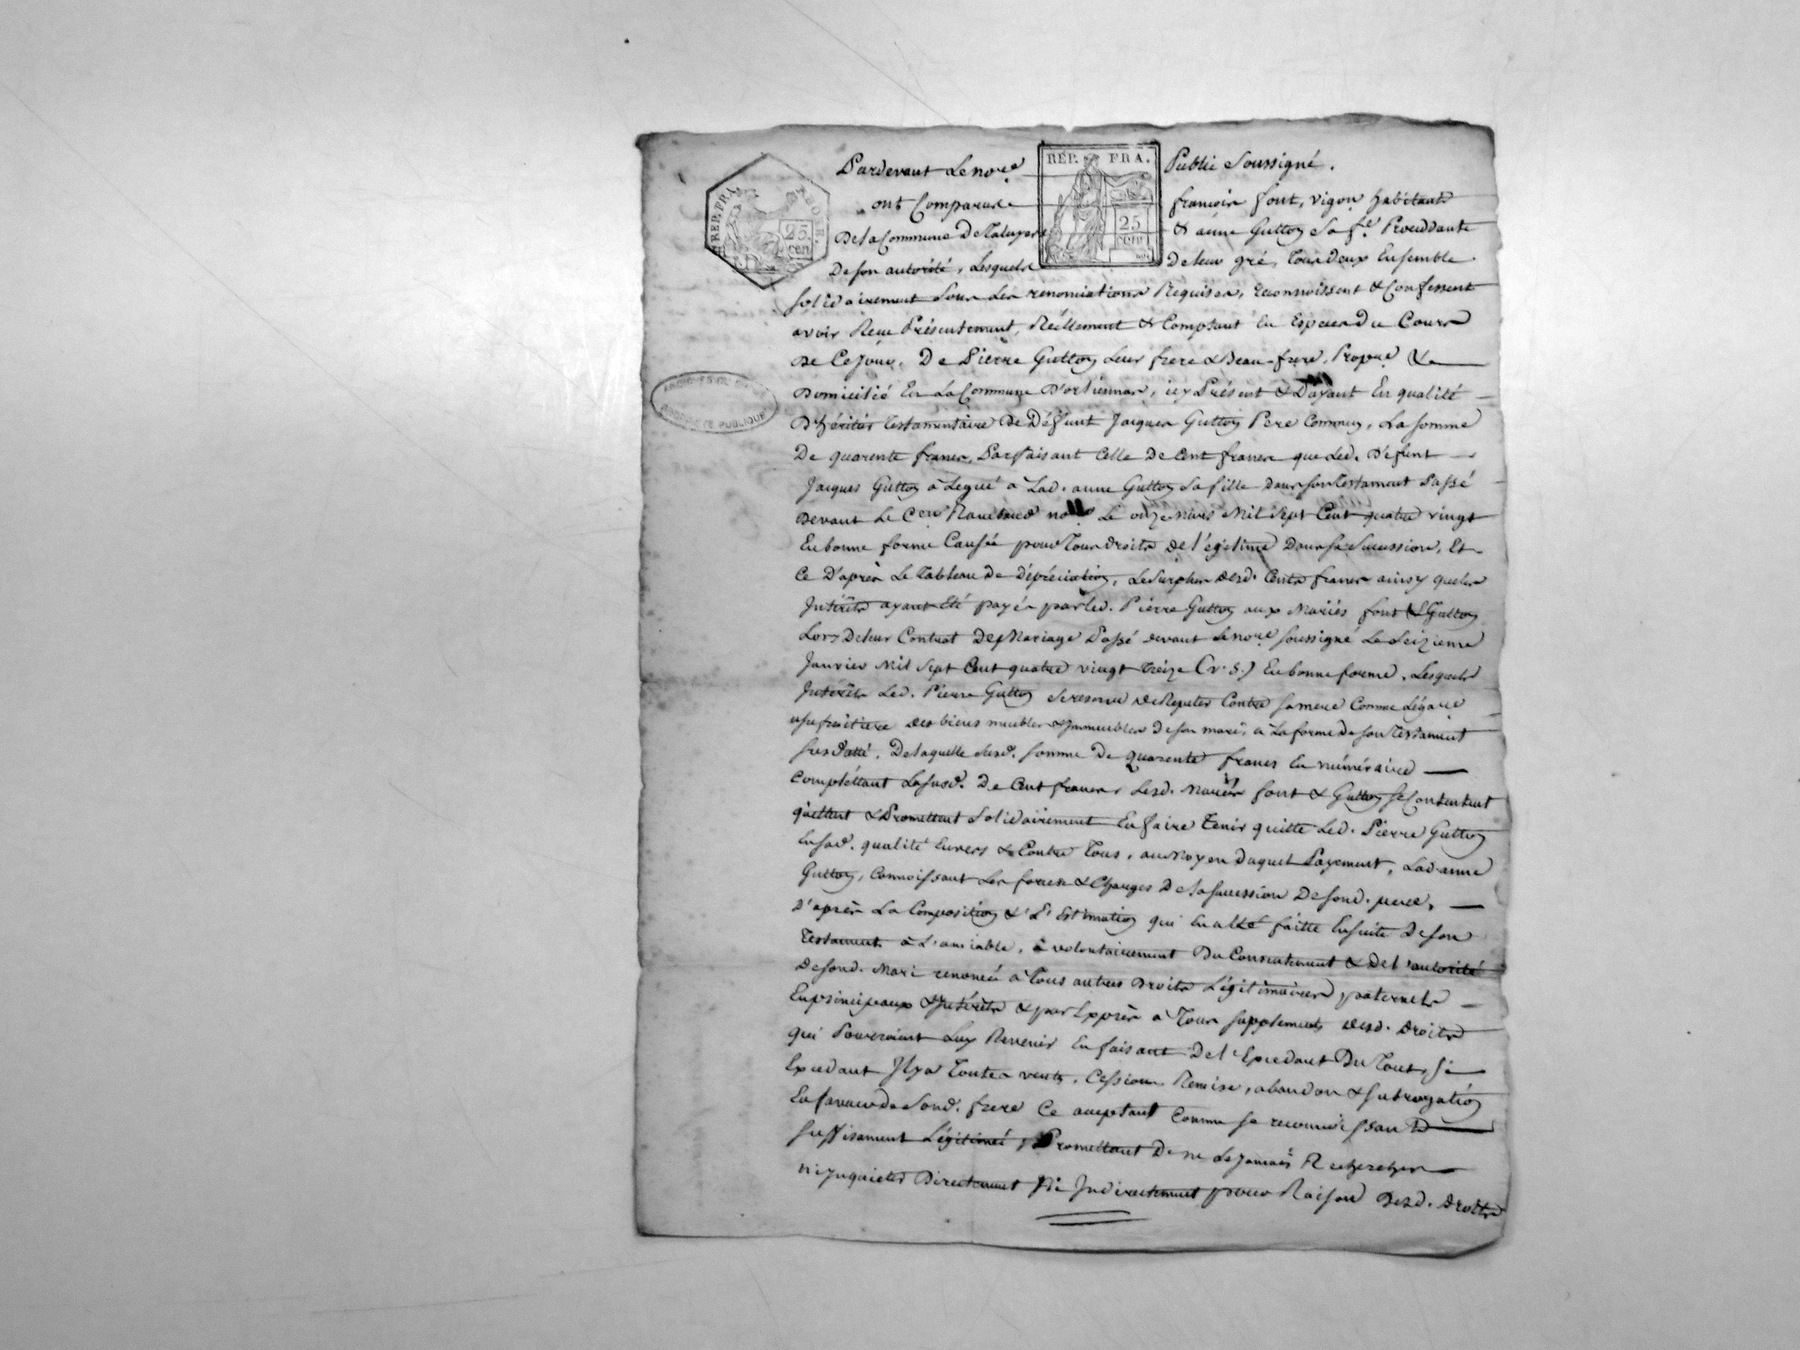 Pardevant Le nore Public Soussigné.
ont Comparus françois font, vigon habitants
De la Commune De Taluyers & anne Gutton Sa fe. Procédante
De Son autorité, Lesquels De leur gré, Tous Deux Ensemble
Solidairement Sous Les renonciations Requises, reconnoissent & Confessent
avoir Reçu Présentement, Réellement & Comptant En Especes Du Cours
De Ce Jour, De Pierre Gutton Leur frere & Beau-frere, Propre &
REP. FRA.
25 cen.
REP. FRA.
25 cen.
Domicilié En La Commune D'orliennas, icy Présent & Payant En qualité
D'héritier Testamentaire De Défunt Jacques Gutton Pere Commun, La Somme
De quarente francs, Parfaisant Celle De Cent francs que Led. Défunt
Jacques Gutton a Legué a Lad. anne Gutton Sa fille Dans Son Testament Passé
Devant Le Cen no Le onze Mil Sept Cent quatre vingt
En bonne forme Causée pour Tous Droits De Légitime Dans Sa Succession, Et
Ce D'après Le Tableau De Dépréciation, Le Surplus Desd. Cents francs ainsy que Les
Intérêts ayant Eté payés par Led. Pierre Gutton aux Mariés font & Gutton
Lors De leur Contrat De Mariage Passé devant Le nore Soussigné Le Seizieme
Janvier Mil Sept Cent quatre vingt Treize (v. S.) En bonne forme, Lesquels
Intérêts Led. Pierre Gutton Se reserve De Repeter Contre Sa mere Comme Légatre
usufruitiere Des biens meubles & Immeubles De Son mari, a La forme De Son Testament
Susdatté. De laquelle Susd. Somme De quarente francs En numéraire
Complettant La Susd. De Cent francs, Lesd. Mariés font & Gutton Se Contentent
quittent & Promettent Solidairement En faire Tenir quitte Led. Pierre Gutton
En Sad. qualité Envers & Contre Tous, au Moyen Duquel Payement, Lad anne
Gutton, Connoissant Les forces & Charges De la Succession De Sond. pere,
D'après La Composition & L'Estimation qui En a Eté faitte Ensuite De Son
Testament a L'amiable, a volontairement Du Consentement & De L'autorité
De Sond. Mari renoncé a Tous autres Droits Légitimaires paternels
En principaux & Intérêts & par Exprès a Tous Supplements Desd. Droits
qui Pourroient Luy Revenir En faisant De L'Excedant Du Tout, Si
Excedant Il y a Toutes vente, Cession, Remise, abandon & Subrogation
En faveur De Sond. frere Ce acceptant Comme Se reconnoissant
Suffisament Légitimée, Promettant De ne Le Jamais Rechercher
ni Inquieter Directement Ni Indirectement pour Raison Desd. Droits
PROPRIETE PUBLIQUE